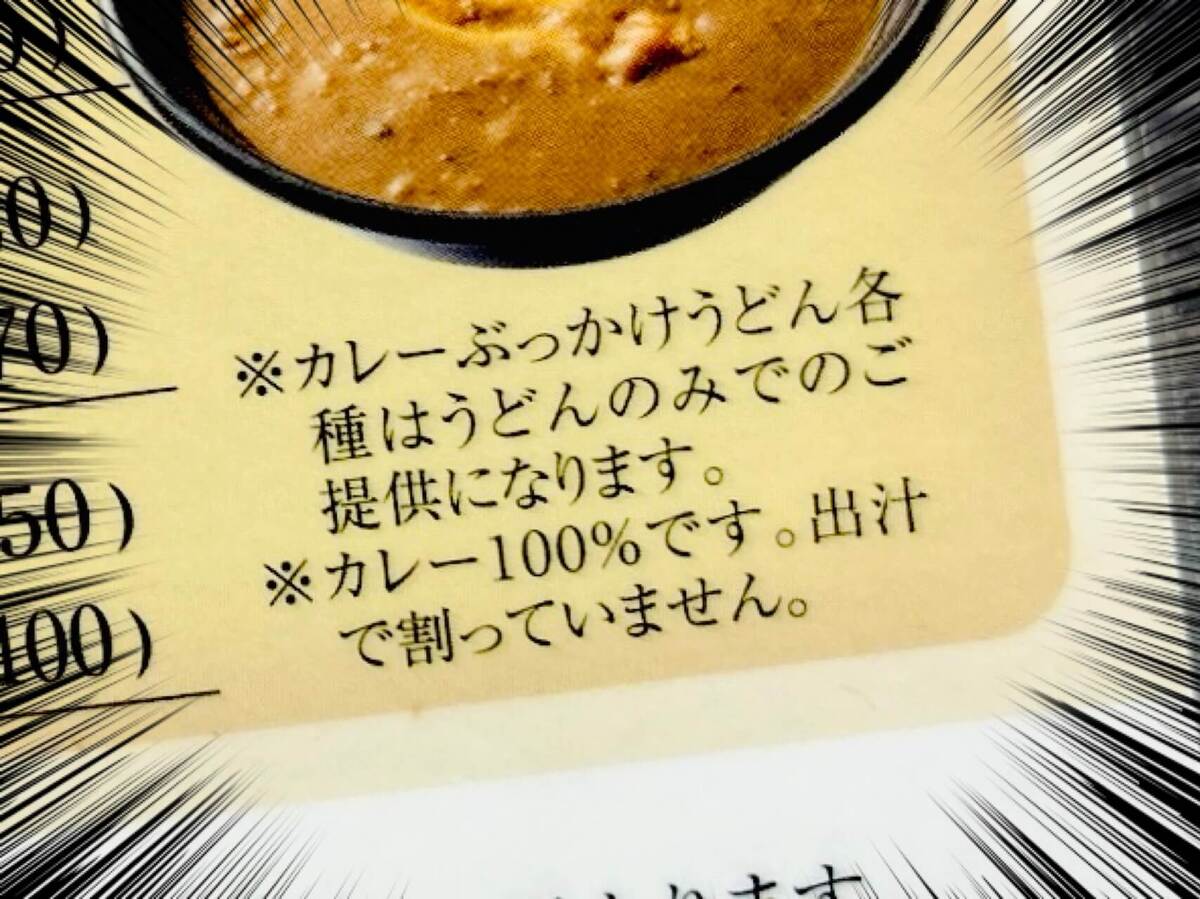 0)
70)
50)
100)
※カレーぶっかけうどん各
種はうどんのみでのご
提供になります。
※カレー100%です。出汁
で割っていません。
ります